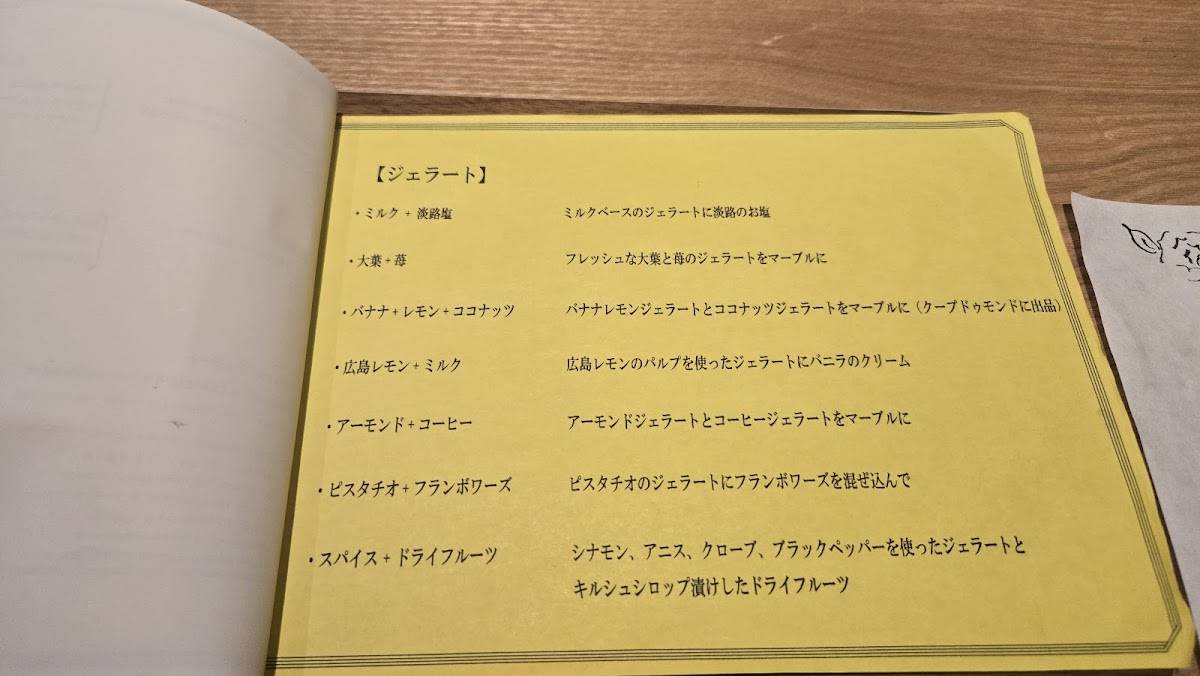 【ジェラート】
・ミルク + 淡路塩 ミルクベースのジェラートに淡路のお塩
・大葉 + 苺 フレッシュな大葉と苺のジェラートをマーブルに
・バナナ + レモン + ココナッツ バナナレモンジェラートとココナッツジェラートをマーブルに（クープドゥモンドに出品）
・広島レモン + ミルク 広島レモンのパルプを使ったジェラートにバニラのクリーム
・アーモンド + コーヒー アーモンドジェラートとコーヒージェラートをマーブルに
・ピスタチオ + フランボワーズ ピスタチオのジェラートにフランボワーズを混ぜ込んで
・スパイス + ドライフルーツ シナモン、アニス、クローブ、ブラックペッパーを使ったジェラートと
キルシュシロップ漬けしたドライフルーツ